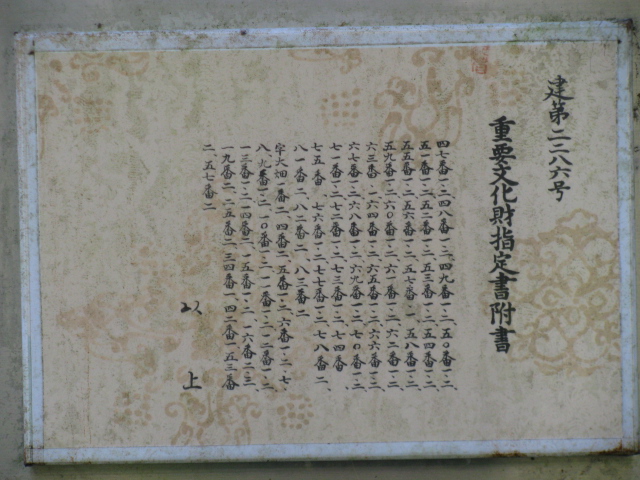 建第二二八六号
重要文化財指定書附書
四七番一・二、四八番一・二、四九番一・二、五〇番一・二、
五一番一・二、五二番一・二、五三番一・二、五四番一・二、
五五番一・二、五六番一・二、五七番一、五八番一・二、
五九番一・二、六〇番一・二、六一番一・二、六二番一・二、
六三番、六四番一・二、六五番一・二、六六番一・二、
六七番一・二、六八番一・二、六九番一・二、七〇番一・二、
七一番一・二、七二番一・二、七三番一・二、七四番
七五番、七六番一・二、七七番一・二、七八番二、
八一番二、八二番二、八三番二
字大畑一番二、四番二、五番一・二、六番一・二、七、
八、九番一・二、一〇番一・二、一一番一・二、一二番一・二、
一三番一・二、一四番二、一五番一・二、一六番二・三、
一九番二、二五番二、三四番一、四二番一、五三番
二、五七番二
以上